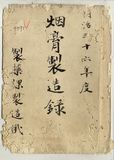 明治三十六年度
烟膏製造錄
製藥課製造掛